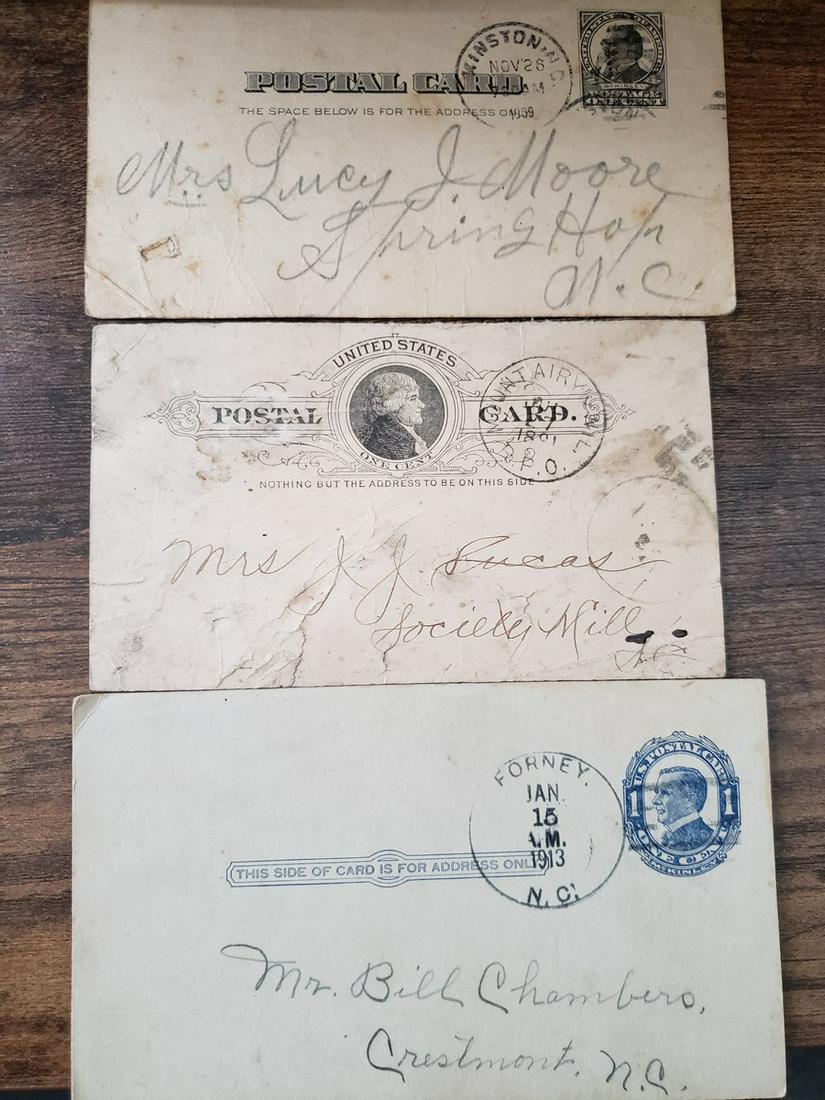 POSTAL CARD.
KINSTON, N.C.
NOV 26
AM
UNITED STATES OF AMERICA
McKINLEY
POSTAGE
ONE CENT
THE SPACE BELOW IS FOR THE ADDRESS ONLY
Mrs Lucy J. Moore
Spring Hope
N.C.
UNITED STATES
POSTAL CARD.
ONE CENT
MOUNT AIRY
P.O.
NOTHING BUT THE ADDRESS TO BE ON THIS SIDE
Mrs J J Lucas
Society Hill
FORNEY.
JAN.
15
A.M.
1913
N.C.
U.S. POSTAL CARD
1 1
ONE CENT
McKINLEY
THIS SIDE OF CARD IS FOR ADDRESS ONLY
Mr. Bill Chambers,
Crestmont, N.C.